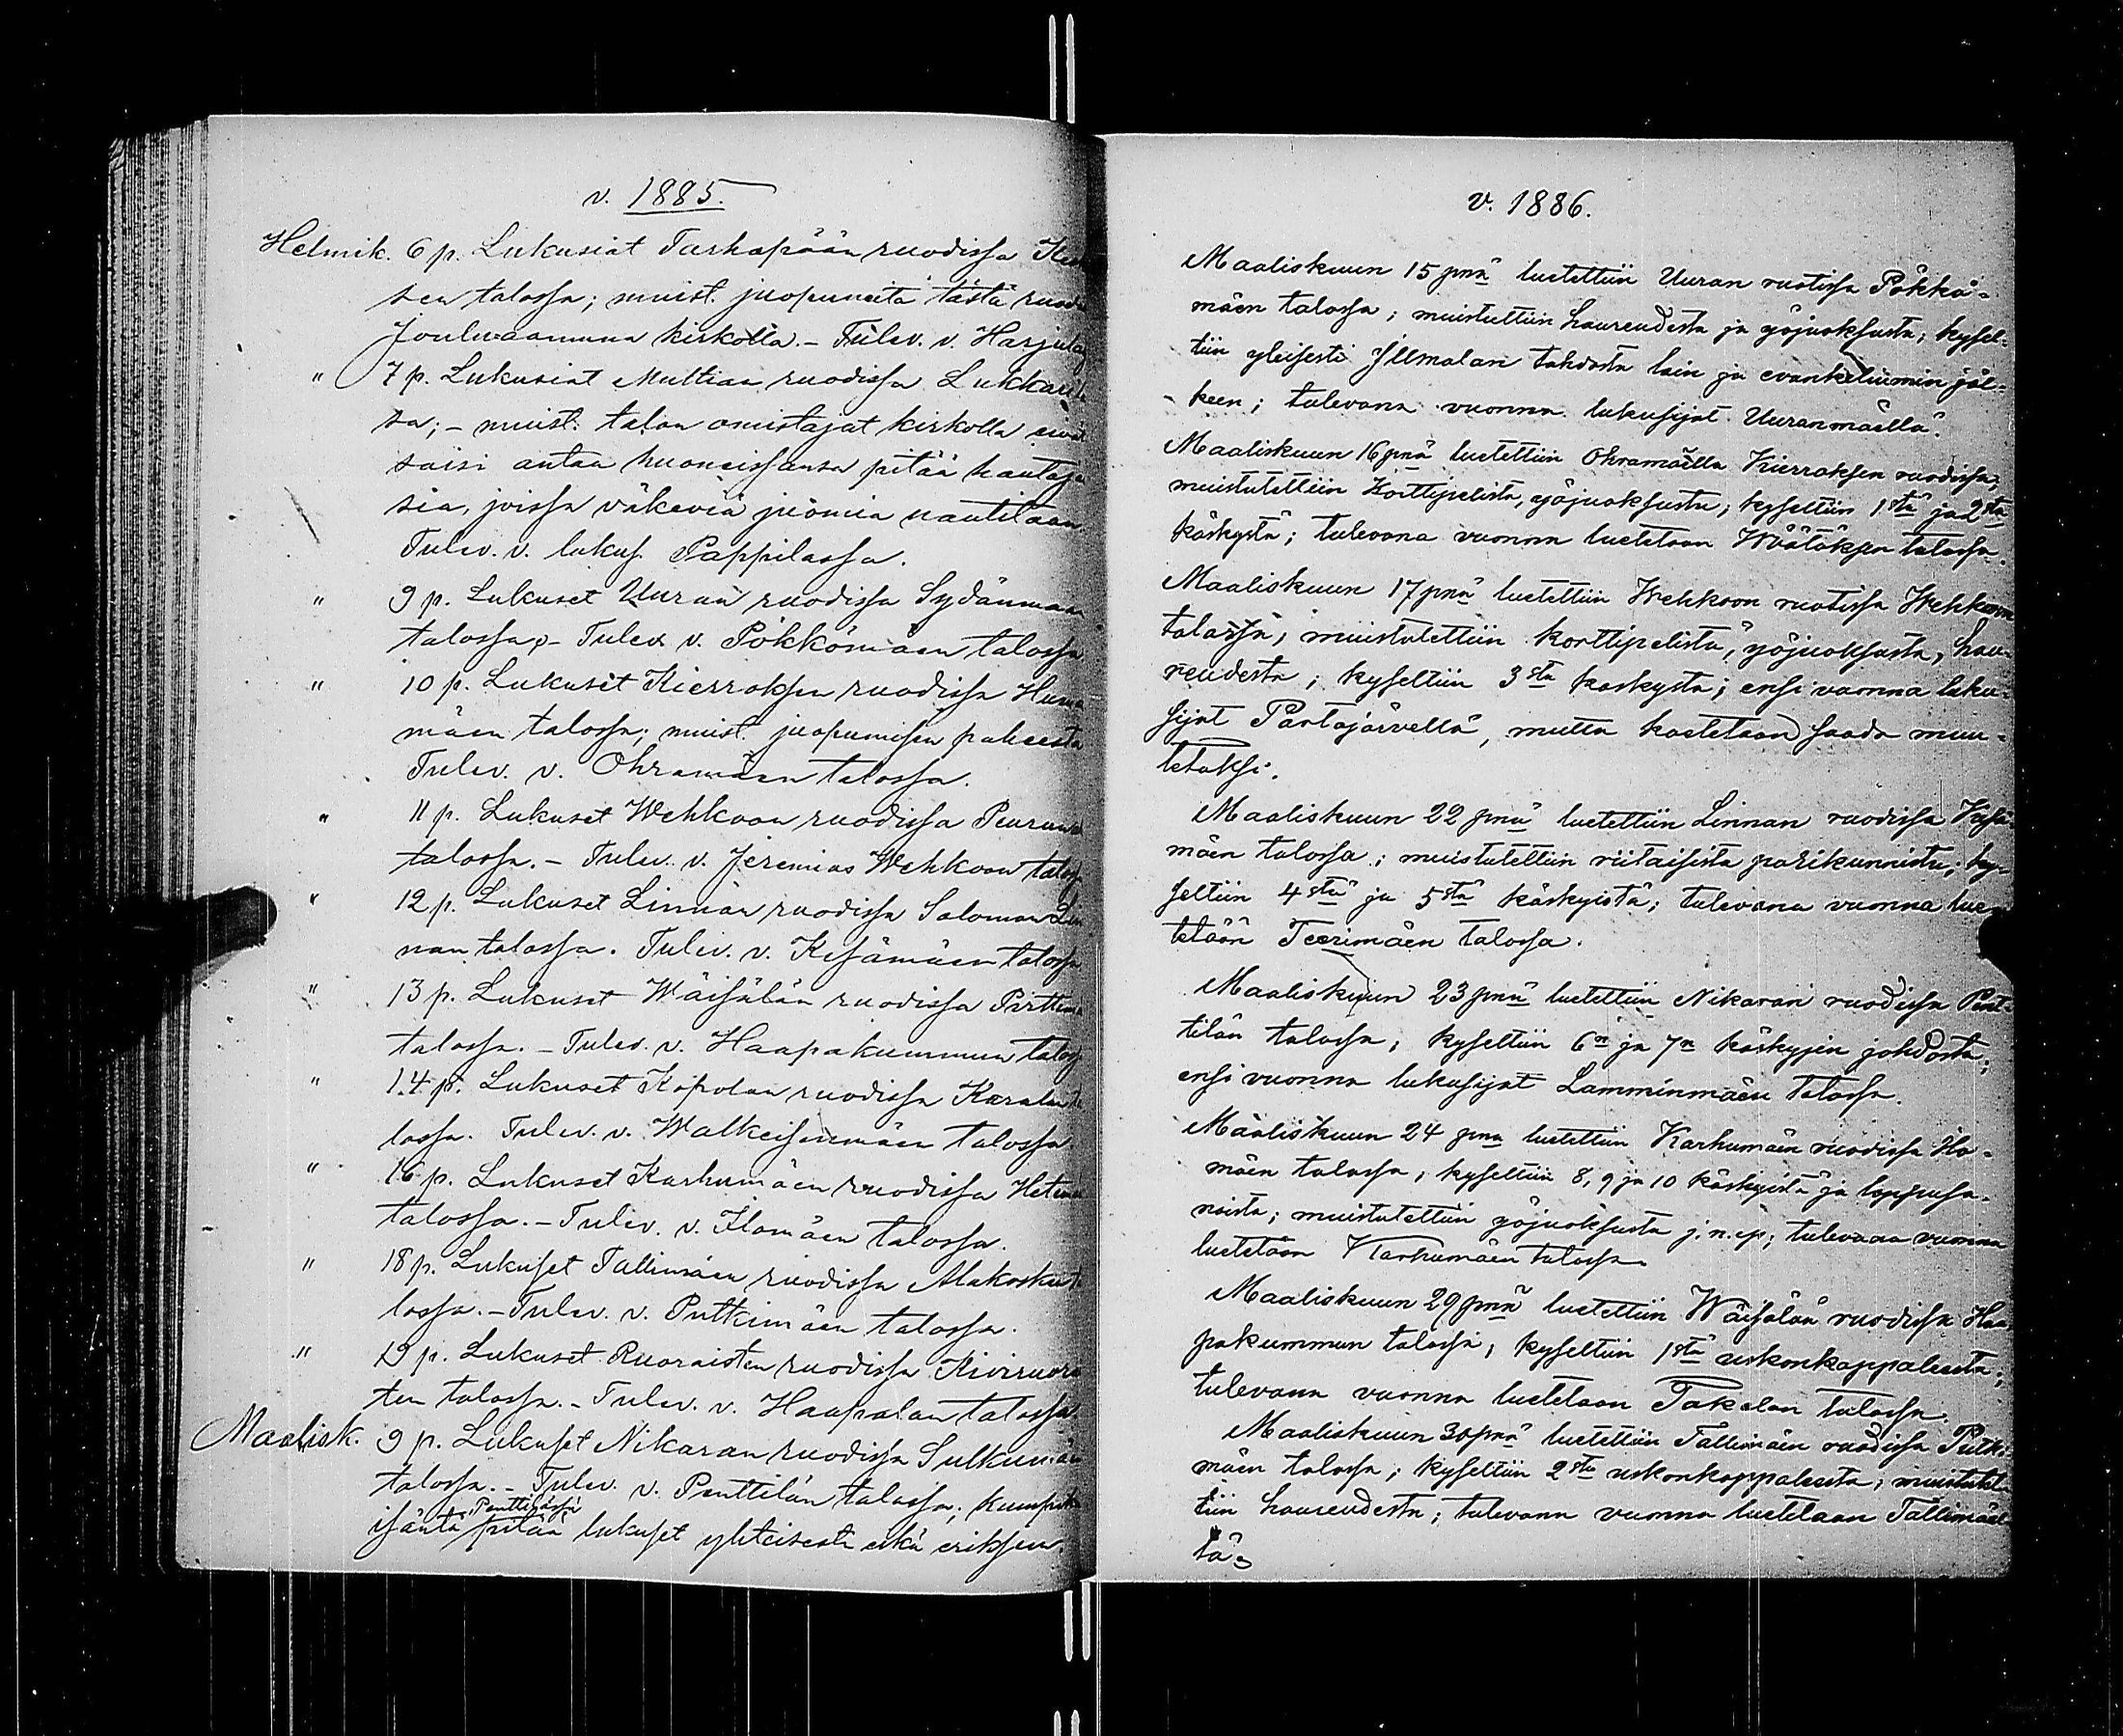 v. 1885.
Helmik. 6 p. Lukusiat Tarhapään ruodissa
sen talossa; muist. juopuneita tästä
Jouluaamuna kirkolla. - Tulev. v.
" 7 p. Lukusiat Multian ruodissa
sa; - muist. talon omistajat kirkolla eivät
saisi antaa huoneissansa pitää
sia, joissa väkeviä juomia nautitaan.
Tulev. v. lukus. Pappilassa.
" 9 p. Lukuset Uuran ruodissa Sydänmaan
talossa, - Tulev. v. Pökkömäen talossa
" 10 p. Lukuset Kierroksen ruodissa
mäen talossa; muist. juopumisen paheesta
Tulev. v. Ohramäen talossa.
" 11 p. Lukuset Wehkoon ruodissa
talossa. - Tulev. v. Jeremias Wehkoon
" 12 p. Lukuset Linnan ruodissa Salomon
nan talossa. Tulev. v. Kesämäen talossa
" 13 p. Lukuset Wäisälän ruodissa
talossa. - Tulev. v. Haapakummun
" 14 p. Lukuset Kopolan ruodissa
lossa. Tulev. v. Walkeisenmäen talossa
" 16 p. Lukuset Karhumäen ruodissa
talossa. - Tulev. v. Ilomäen talossa.
" 18 p. Lukuset Tallimäen ruodissa
lossa. - Tulev. v. Putkimäen talossa.
" 19 p. Lukuset Ruoraisten ruodissa
ten talossa. - Tulev. v. Haapalan talossa
Maalisk. 9 p. Lukuset Nikaran ruodissa
talossa. - Tulev. v. Penttilän talossa;
Penttilässä
isäntä pitää lukuset yhteisesti eikä eriksen.
v. 1886.
Maaliskuun 15 pnä luetettiin Uuran ruotissa Pökkö-
mäen talossa; muistutettiin haureudesta ja yöjuoksusta; kysel-
tiin yleisesti Jummalan tahdosta lain ja evankeliumin jäl-
keen; tulevana vuonna lukusijat Uuranmäellä.
Maaliskuun 16 pnä luetettiin Ohramäellä Kierroksen ruodissa;
muistutettiin korttipelistä, yöjuoksusta; kyseltiin 1stä ja 2sta
käskystä; tulevana vuonna luetetaan talossa.
Maaliskuun 17 pnä luetettiin Wehkoon ruotissa Wehkoon
talossa; muistutettiin korttipelistä, yöjuoksusta, hau-
reudesta; kyseltiin 3sta käskystä; ensi vuonna luku-
sijat Pärtäjärvellä, mutta koetetaan saada muu-
tetuksi.
Maaliskuun 22 pnä luetettiin Linnan ruodissa
mäen talossa; muistutettiin riitaisista pariskunnista; ky-
seltiin 4stä ja 5stä käskyistä; tulevana vuonna lue-
tetään Teerimäen talossa.
Maaliskuun 23 pnä luetettiin Nikaran ruodissa Pent-
tilän talossa; kyseltiin 6n ja 7n käskyjen johdosta;
ensi vuonna lukusijat Lamminmäen talossa.
Maaliskuun 24 pnä luetettiin Karhumäen ruodissa
mäen talossa; kyseltiin 8, 9 ja 10 käskyistä ja loppusa-
noista; muistutettiin yöjuoksusta j.n.ep; tulevana vuonna
luetetaan Karhumäen talossa.
Maaliskuun 29 pnä luetettiin Wäisälän ruodissa Haa-
pakummun talossa; kyseltiin 1stä uskonkappaleesta;
tulevana vuonna luetetaan Takalan talossa.
Maaliskuun 30 pnä luetettiin Tallimäen ruodissa Putki-
mäen talossa; kyseltiin 2sta uskonkappaleesta; muistutet-
tiin haureudesta; tulevana vuonna luetetaan Tallimäel-
lä.